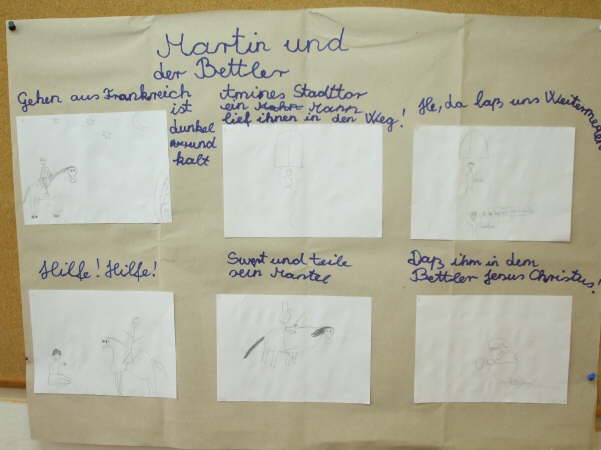 Martin und
der Bettler
Gehen aus Frankreich
ist
dunkel
und
kalt
Amines Stadttor
ein Mann
lief ihnen in den Weg!
He, da laß uns Weiterreiten
Hilfe! Hilfe!
Swert und teile
sein Mantel
Daß ihm in dem
Bettler Jesus Christus!